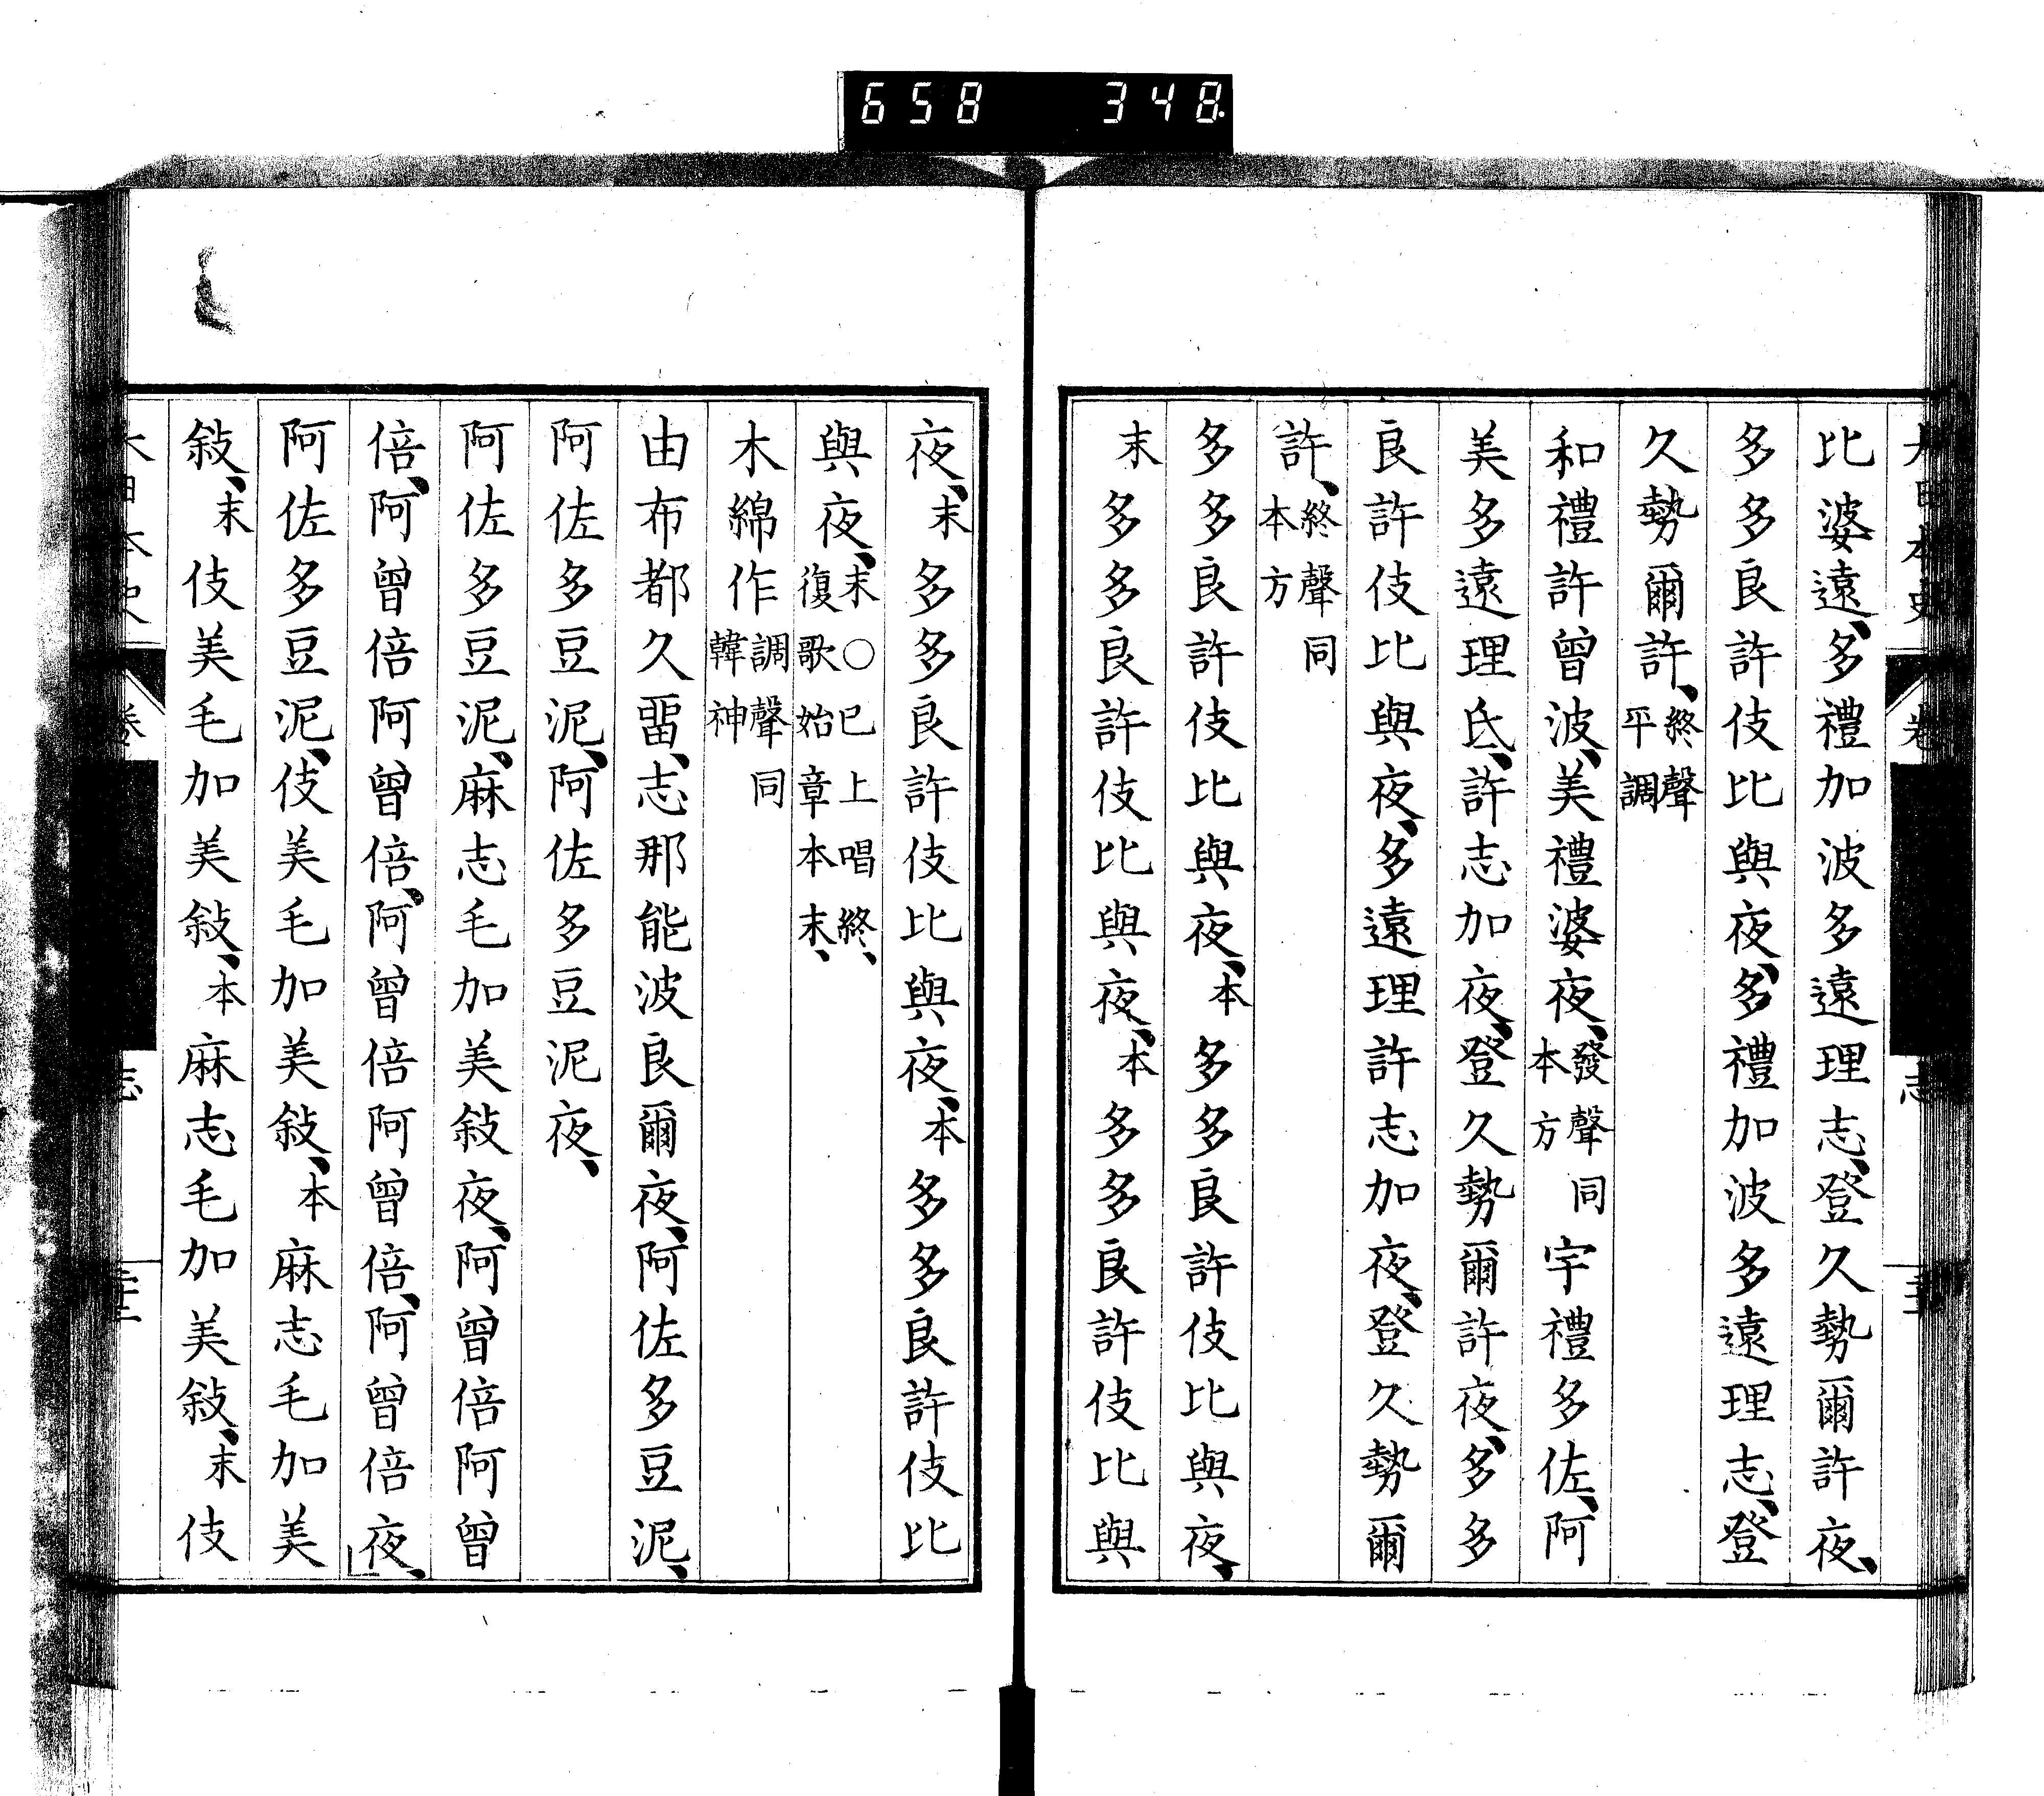 658 348
比婆遠、多禮加波多遠理志、登久勢爾許夜、
多多良許伎比與夜、多禮加波多遠理志、登
久勢爾許、終聲平調
和禮許曾波、美禮婆夜、發聲同本方宇禮多佐、阿
美多遠理氐、許志加夜、登久勢爾許夜、多多
良許伎比與夜、多遠理許志加夜、登久勢爾
許、終聲同本方
多多良許伎比與夜、本多多良許伎比與夜、
末多多良許伎比與夜、本多多良許伎比與
夜、末多多良許伎比與夜、本多多良許伎比
與夜、末○已上唱終、復歌始章本末、
木綿作調聲同韓神
由布都久畱、志那能波良爾夜、阿佐多豆泥、
阿佐多豆泥、阿佐多豆泥夜、
阿佐多豆泥、麻志毛加美敍夜、阿曾倍阿曾
倍、阿曾倍阿曾倍、阿曾倍阿曾倍、阿曾倍夜、
阿佐多豆泥、伎美毛加美敍、本麻志毛加美
敍、末伎美毛加美敍、本麻志毛加美敍、末伎